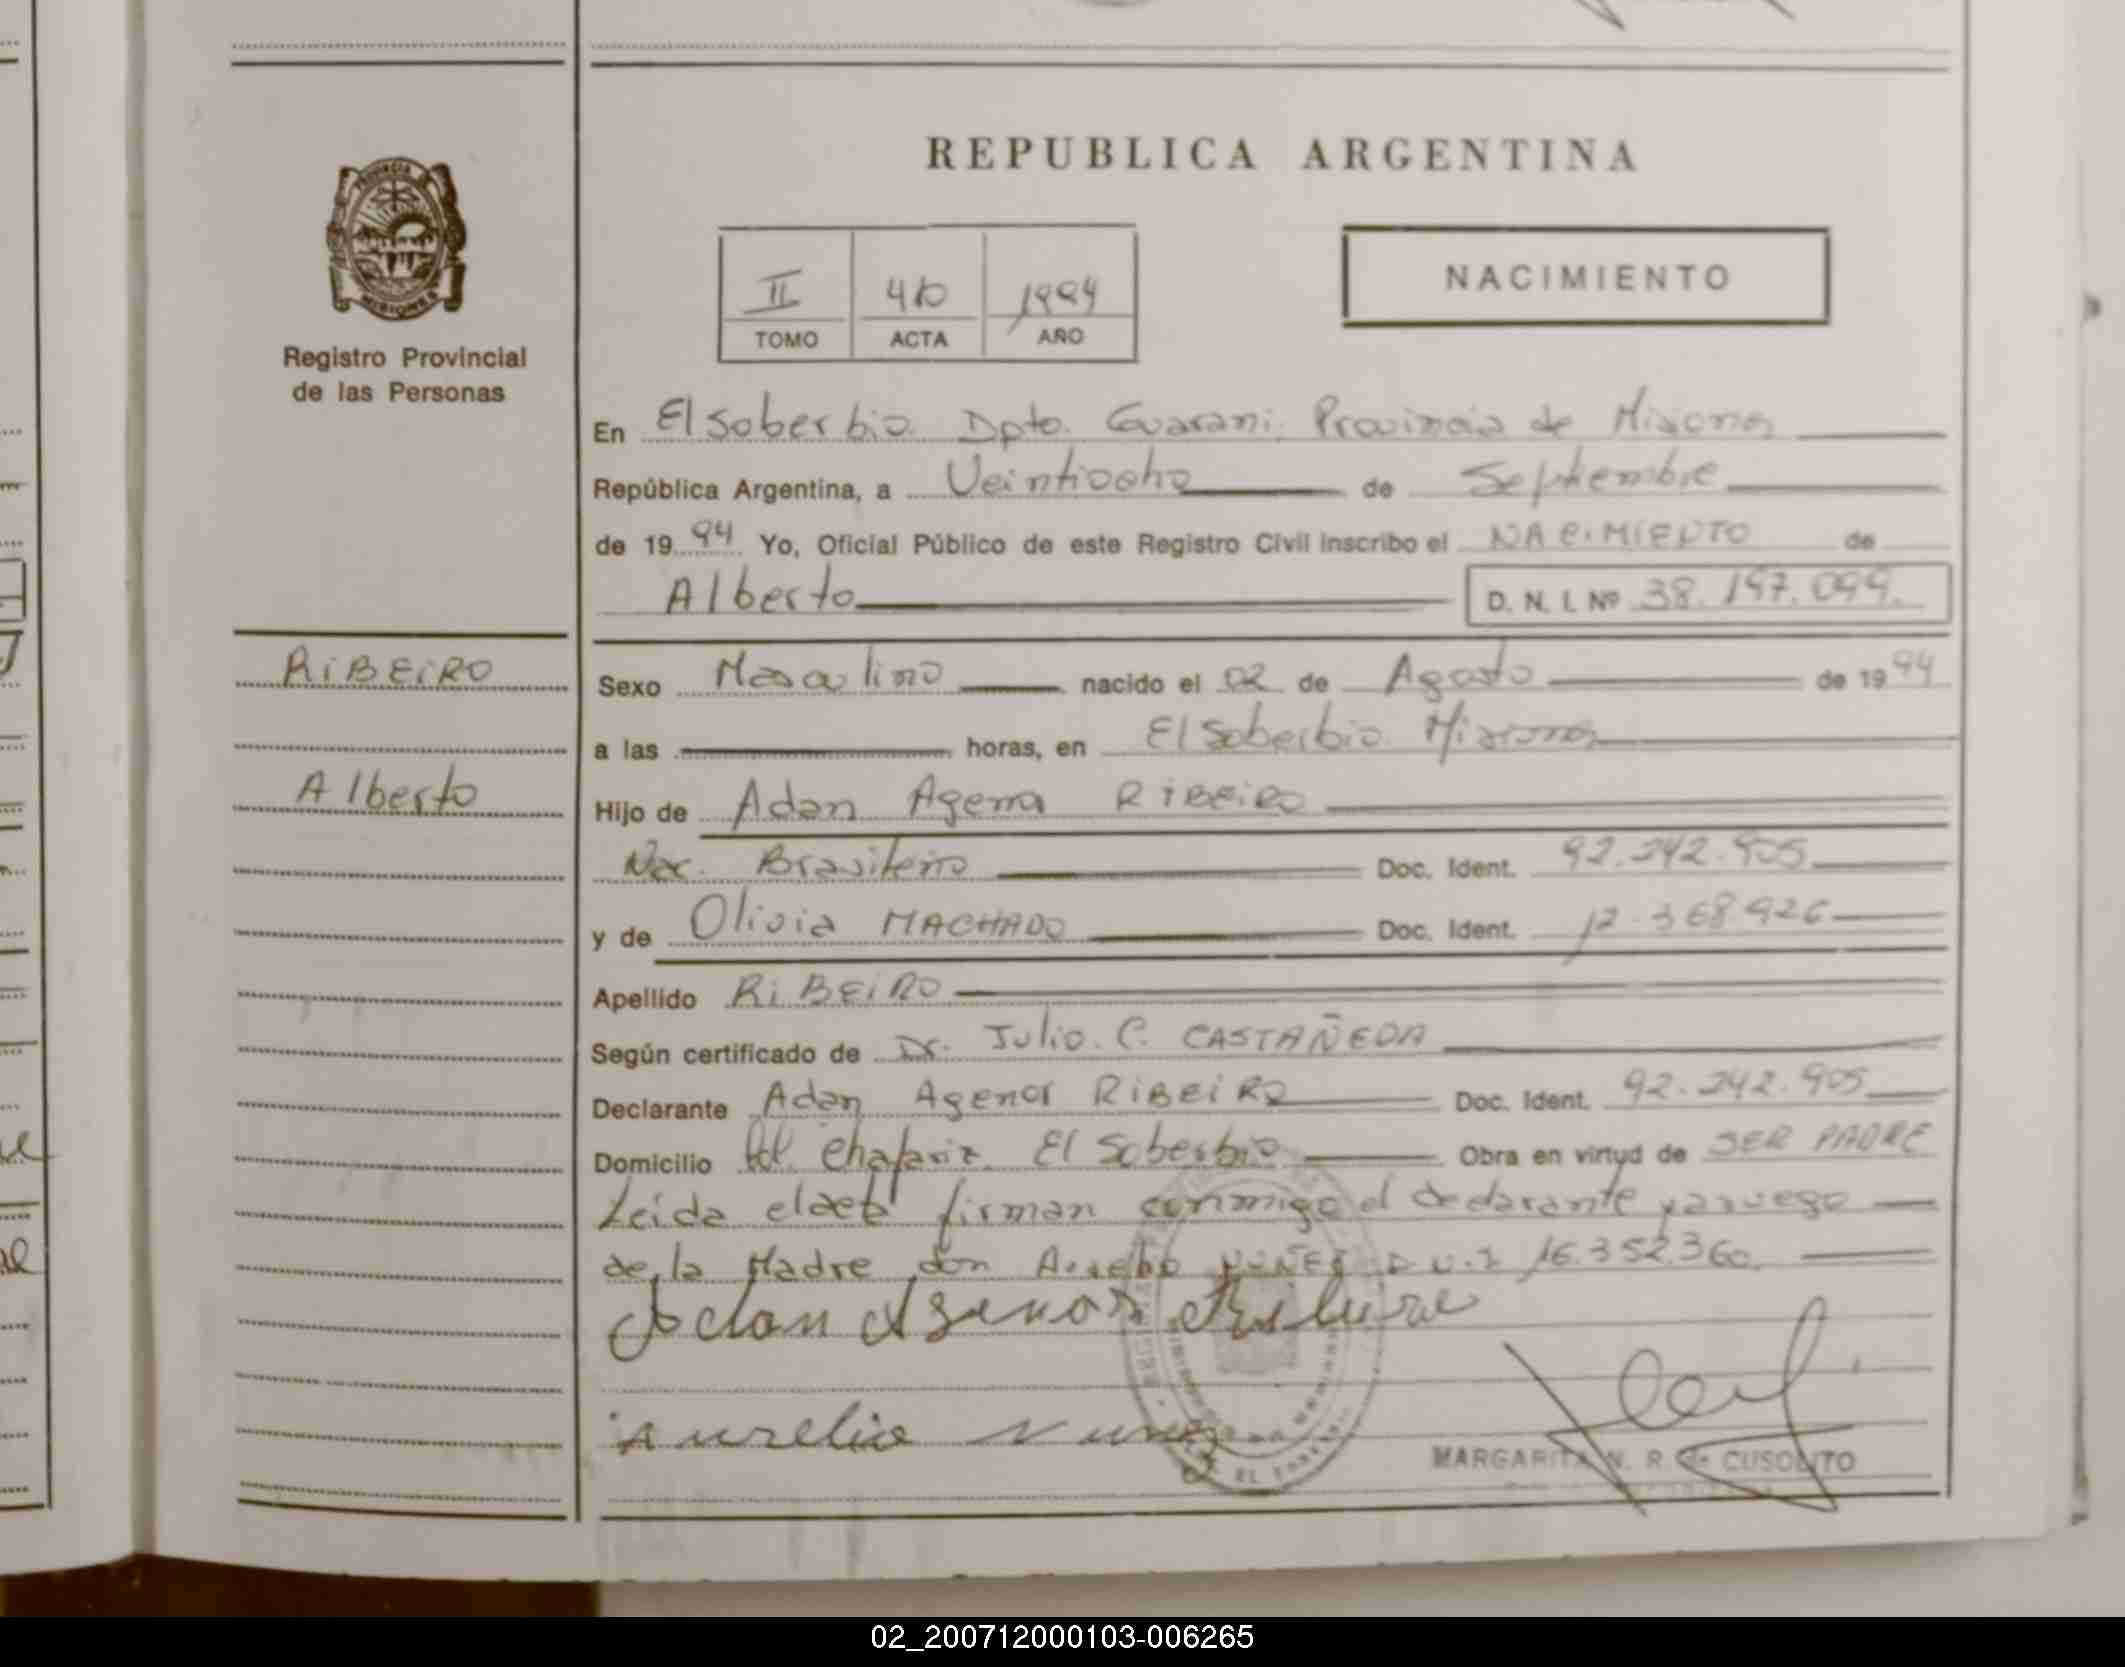 REPUBLICA ARGENTINA
NACIMIENTO
II 410 1994
TOMO ACTA AÑO
Registro Provincial
de las Personas
En El Soberbio. Dpto. Guarani. Provincia de Misiones
República Argentina, a Veintiocho de Septiembre
de 1994 Yo, Oficial Público de este Registro Civil inscribo el NACIMIENTO de
Alberto D. N. I. Nº 38.197.099.
RIBEIRO
Alberto
Sexo Masculino nacido el 02 de Agosto de 1994
a las horas, en El Soberbio. Misiones
Hijo de Adan Agenor RIBEIRO
Nac. Brasilero Doc. Ident. 92.242.905
y de Olivia MACHADO Doc. Ident. 12.368.926
Apellido RIBEIRO
Según certificado de Dr. Julio. C. CASTAÑEDA
Declarante Adan Agenor RIBEIRO Doc. Ident. 92.242.905
Domicilio Chafariz. El Soberbio Obra en virtud de SER PADRE
Leida el acta firman conmigo el declarante y a ruego
de la Madre don Aurelio NUÑEZ D.N.I 16.352.360.
Adan Agenor
Aurelio Nunez
MARGARITA N. R. de CUSOLITO
02_200712000103-006265